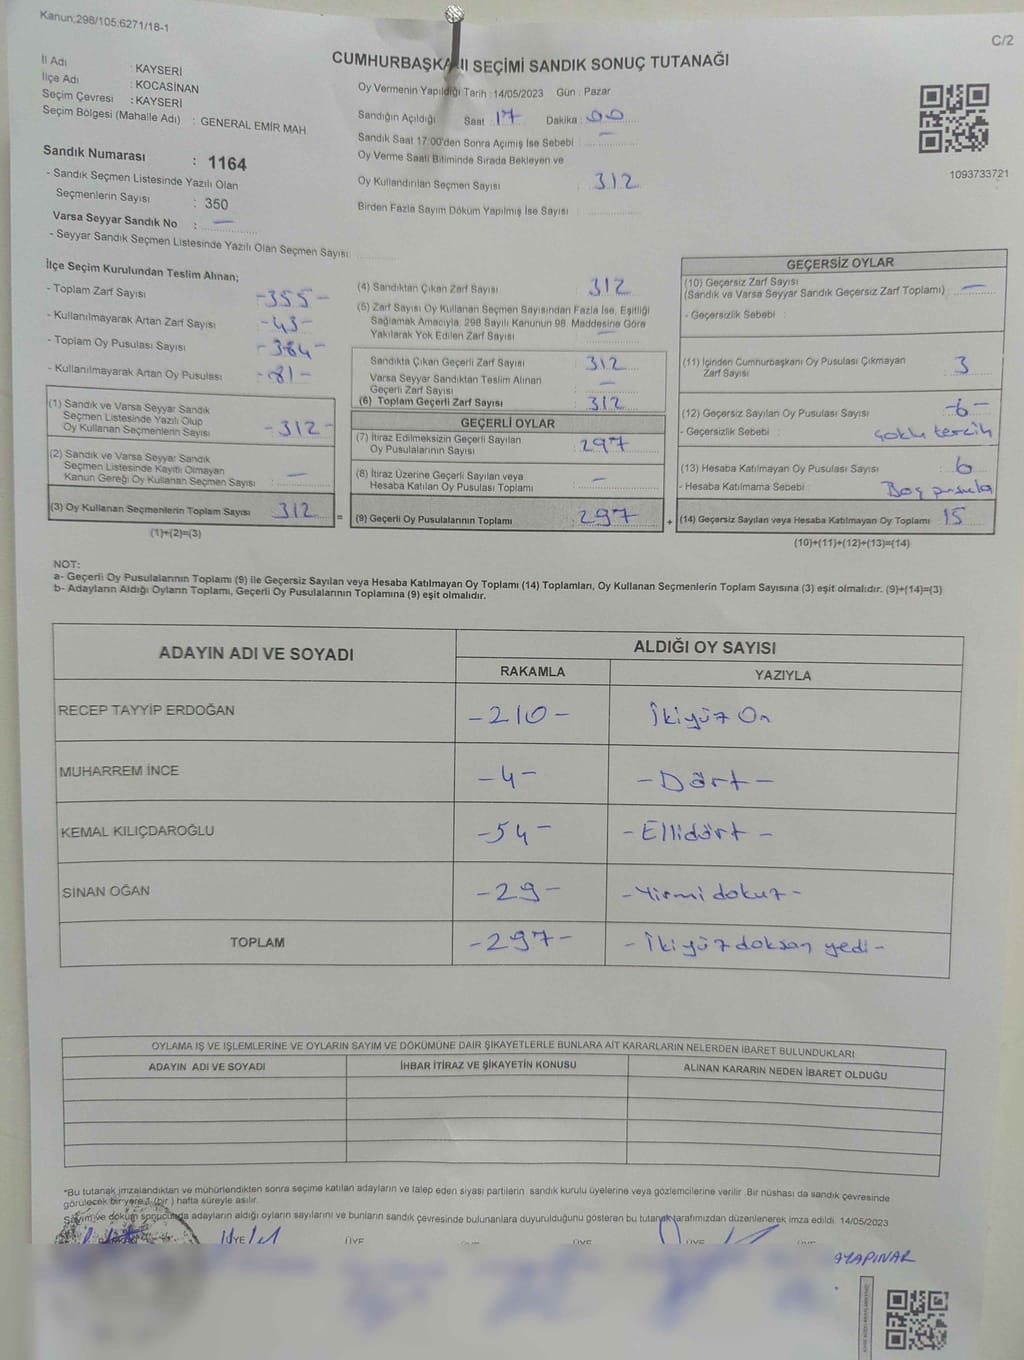 Kanun:298/105,6271/18-1
C/2
CUMHURBAŞKANI SEÇİMİ SANDIK SONUÇ TUTANAĞI
İl Adı : KAYSERİ
İlçe Adı : KOCASİNAN
Seçim Çevresi : KAYSERİ
Seçim Bölgesi (Mahalle Adı) : GENERAL EMİR MAH
Sandık Numarası : 1164
- Sandık Seçmen Listesinde Yazılı Olan
Seçmenlerin Sayısı : 350
Varsa Seyyar Sandık No : —
- Seyyar Sandık Seçmen Listesinde Yazılı Olan Seçmen Sayısı:
Oy Vermenin Yapıldığı Tarih : 14/05/2023 Gün : Pazar
Sandığın Açıldığı Saat 17 Dakika : 00
Sandık Saat 17:00'den Sonra Açımış İse Sebebi : —
Oy Verme Saati Bitiminde Sırada Bekleyen ve
Oy Kullandırılan Seçmen Sayısı : 312
Birden Fazla Sayım Döküm Yapılmış İse Sayısı :
1093733721
İlçe Seçim Kurulundan Teslim Alınan;
- Toplam Zarf Sayısı -355-
- Kullanılmayarak Artan Zarf Sayısı -43-
- Toplam Oy Pusulası Sayısı -384-
- Kullanılmayarak Artan Oy Pusulası -81-
(1) Sandık ve Varsa Seyyar Sandık
Seçmen Listesinde Yazılı Olup
Oy Kullanan Seçmenlerin Sayısı -312-
(2) Sandık ve Varsa Seyyar Sandık
Seçmen Listesinde Kayıtlı Olmayan
Kanun Gereği Oy Kullanan Seçmen Sayısı : —
(3) Oy Kullanan Seçmenlerin Toplam Sayısı 312 =
(1)+(2)=(3)
(4) Sandıktan Çıkan Zarf Sayısı : 312
(5) Zarf Sayısı Oy Kullanan Seçmen Sayısından Fazla İse, Eşitliği
Sağlamak Amacıyla, 298 Sayılı Kanunun 98. Maddesine Göre
Yakılarak Yok Edilen Zarf Sayısı : —
Sandıkta Çıkan Geçerli Zarf Sayısı : 312
Varsa Seyyar Sandıktan Teslim Alınan
Geçerli Zarf Sayısı : —
(6) Toplam Geçerli Zarf Sayısı : 312
GEÇERLİ OYLAR
(7) İtiraz Edilmeksizin Geçerli Sayılan
Oy Pusulalarının Sayısı : 297
(8) İtiraz Üzerine Geçerli Sayılan veya
Hesaba Katılan Oy Pusulası Toplamı : —
(9) Geçerli Oy Pusulalarının Toplamı : 297 +
GEÇERSİZ OYLAR
(10) Geçersiz Zarf Sayısı
(Sandık ve Varsa Seyyar Sandık Geçersiz Zarf Toplamı) : —
- Geçersizlik Sebebi :
(11) İçinden Cumhurbaşkanı Oy Pusulası Çıkmayan
Zarf Sayısı : 3
(12) Geçersiz Sayılan Oy Pusulası Sayısı : -6-
- Geçersizlik Sebebi : çoklu tercih
(13) Hesaba Katılmayan Oy Pusulası Sayısı : 6
- Hesaba Katılmama Sebebi : Boş pusula
(14) Geçersiz Sayılan veya Hesaba Katılmayan Oy Toplamı : 15
(10)+(11)+(12)+(13)=(14)
NOT:
a- Geçerli Oy Pusulalarının Toplamı (9) ile Geçersiz Sayılan veya Hesaba Katılmayan Oy Toplamı (14) Toplamları, Oy Kullanan Seçmenlerin Toplam Sayısına (3) eşit olmalıdır. (9)+(14)=(3)
b- Adayların Aldığı Oyların Toplamı, Geçerli Oy Pusulalarının Toplamına (9) eşit olmalıdır.
ADAYIN ADI VE SOYADI ALDIĞI OY SAYISI
RAKAMLA YAZIYLA
RECEP TAYYİP ERDOĞAN -210- İkiyüz On
MUHARREM İNCE -4- -Dört-
KEMAL KILIÇDAROĞLU -54- -Ellidört-
SİNAN OĞAN -29- -Yirmidokuz-
TOPLAM -297- -İkiyüzdoksan yedi-
OYLAMA İŞ VE İŞLEMLERİNE VE OYLARIN SAYIM VE DÖKÜMÜNE DAİR ŞİKAYETLERLE BUNLARA AİT KARARLARIN NELERDEN İBARET BULUNDUKLARI
ADAYIN ADI VE SOYADI İHBAR İTİRAZ VE ŞİKAYETİN KONUSU ALINAN KARARIN NEDEN İBARET OLDUĞU
*Bu tutanak imzalandıktan ve mühürlendikten sonra seçime katılan adayların ve talep eden siyasi partilerin sandık kurulu üyelerine veya gözlemcilerine verilir. Bir nüshası da sandık çevresinde
görülecek bir yere 1 (bir ) hafta süreyle asılır.
Sayım ve döküm sonucunda adayların aldığı oyların sayılarını ve bunların sandık çevresinde bulunanlara duyurulduğunu gösteren bu tutanak tarafımızdan düzenlenerek imza edildi. 14/05/2023
ÜYE ÜYE ÜYE ÜYE
AYAPINAR